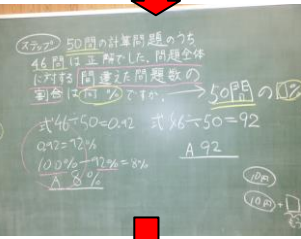 ステップ 50問の計算問題のうち
46問は正解でした。問題全体
に対する間違えた問題数の
割合は何%ですか。
50問の
式46÷50=0.92
0.92=92%
100%-92%=8%
A 8%
式46÷50=92
A 92
10円
10円+